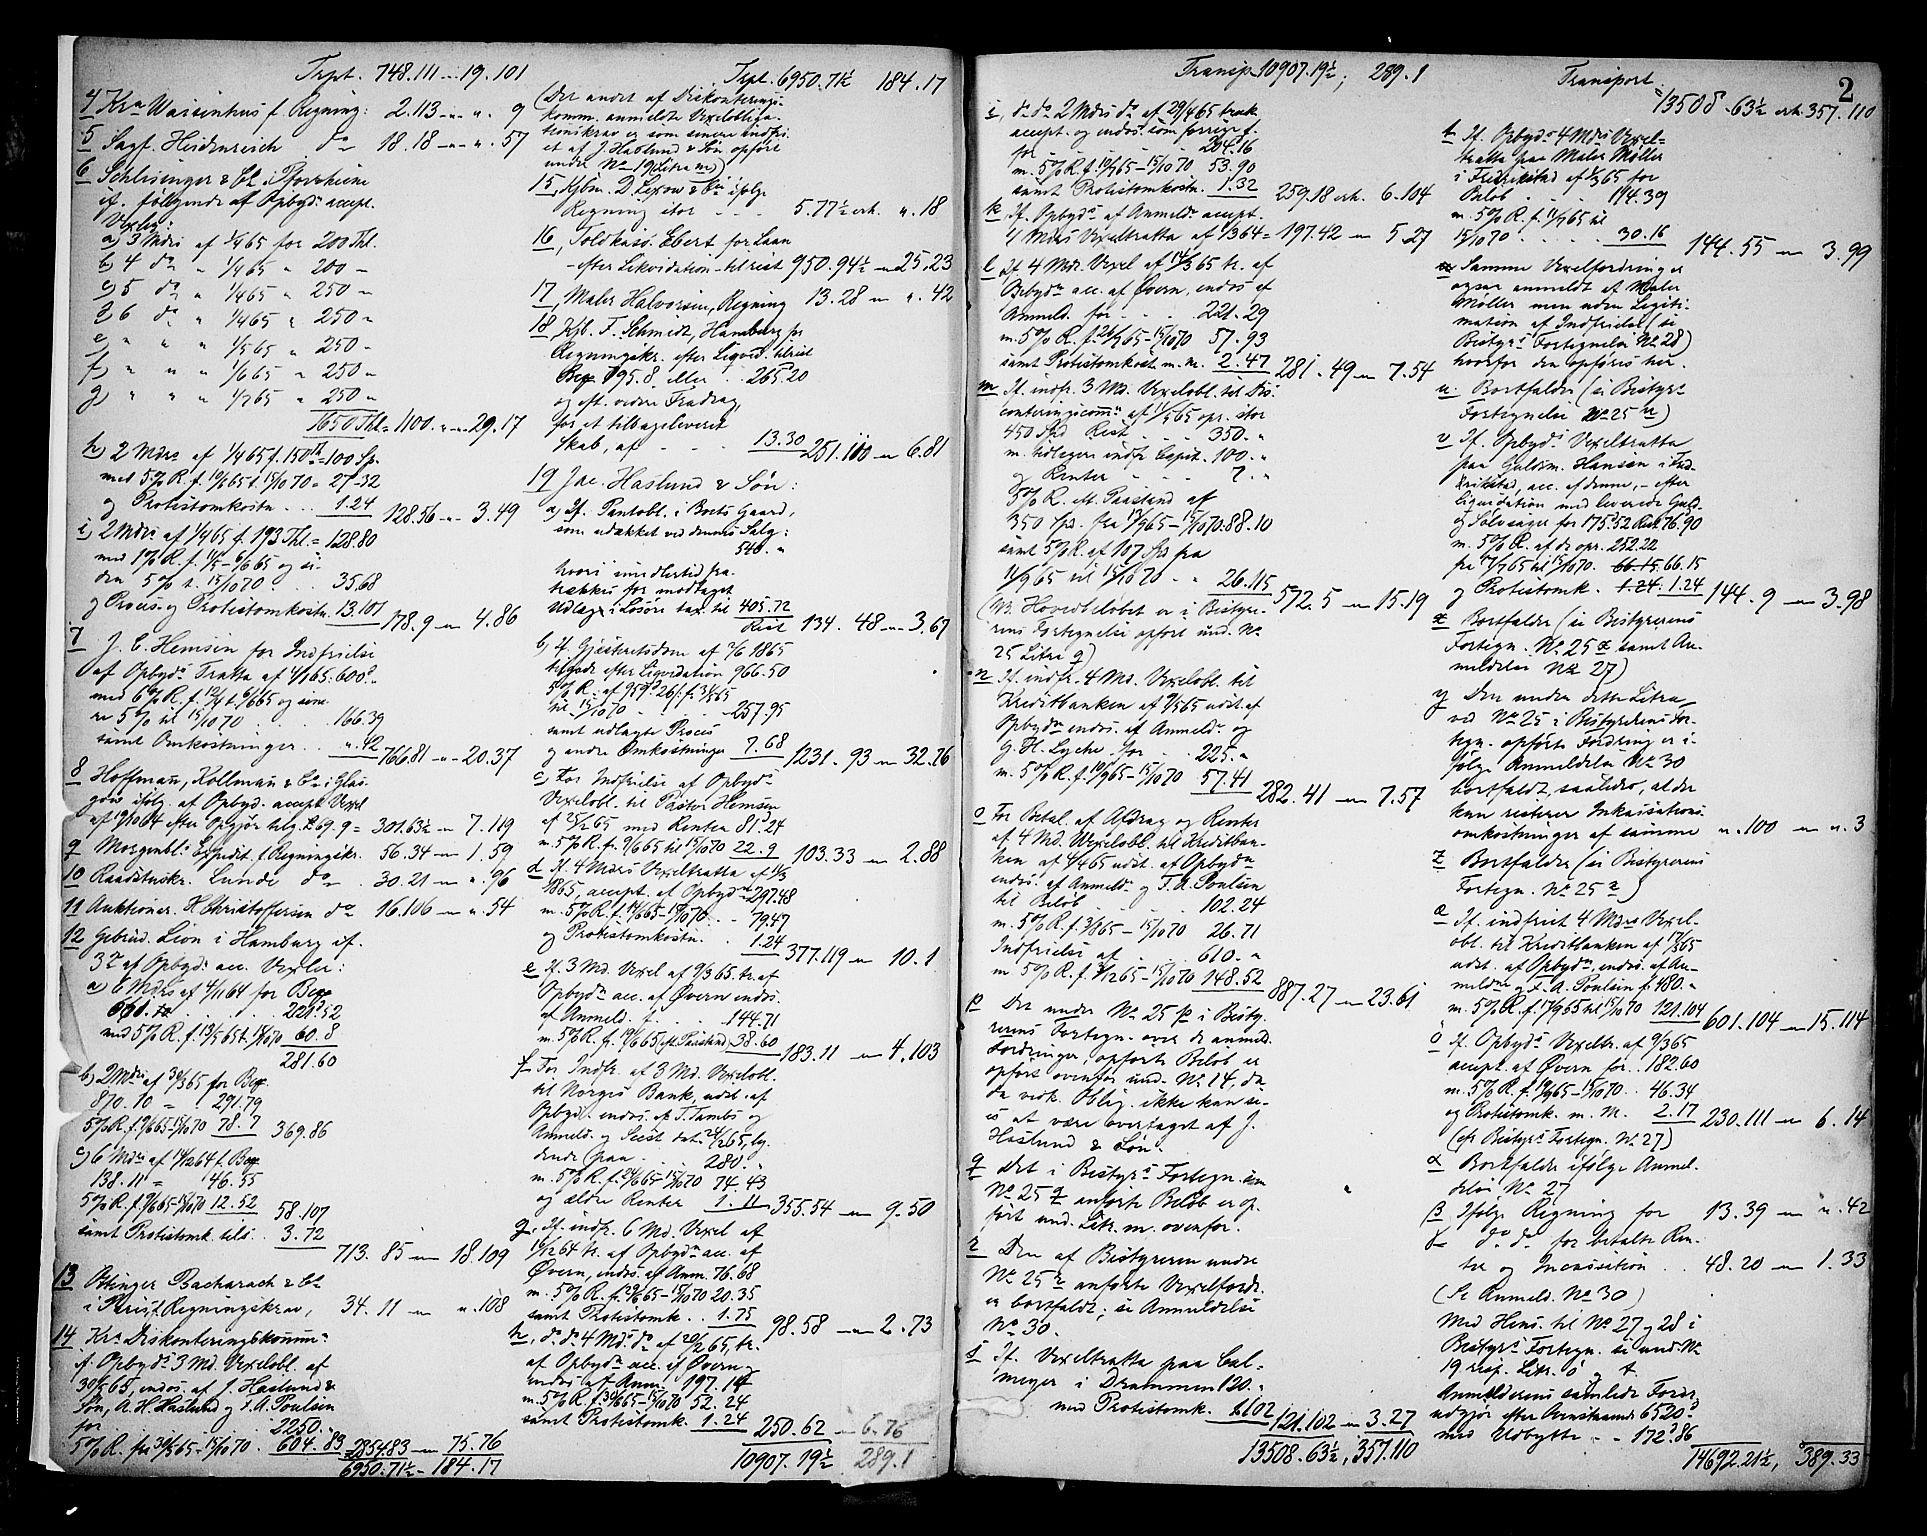 Trpt. 748.111 - 19.101
4 Kra Waisenhus f. Regning: 2.113 - " - " 9
5 Sagf. Heidenreich do 18.18 - " - " 57
6 Schlesinger & Co i Pforzheim
if. følgende af Opbyds accept.
Vexler:
a) 3 Mdrs af 1/4 65 for 200 Thl.
b) 4 do " 1/4 65 " 200 -
c) 5 do " 1/4 65 " 250 -
d) 6 do " 1/4 65 " 250 "
e) " " " 1/5 65 " 250 -
f) " " " 1/6 65 " 250 "
g) " " " 1/7 65 " 250 "
1650 Thl = 1100. " - " 29.17
h) 2 Mdrs af 1/4 65 f. 150 Th = 100 Sp.
med 5% R. f. 15/10 70 = 27.32
og Protestomkostn. ... 1.24 128.56 - " 3.49
i) 2 Mdrs af 1/4 65 f. 193 Thl. = 128.80
den 5% t. 15/10 70 . . 35.68
og Proces- og Protestomkostn. 13.101 178.9 - 4.86
7 J. C. Hemsen for Indfrielse
af Opbyds Tratta af 4/1 65. 600.
med 6% R. f. 12/4 t. 6/6 65 og sene
re 5% til 15/10 70 . . 166.39
samt Omkostninger .. ". 42 766.81 - " - 20.37
8 Hoffmann, Kollmann & Co i Glas-
gow ifølg. af Opbyd. accept. Vexel
af 19/10 64 efter Opgjør bilg. £ 69.9 = 301.63½ - 7.119
9 Morgenbl. Expedit. f. Regningskr. 56.34 - 1.59
10 Raadstuskr. Lunde do - 30.21 - ". 96
11 Auktionar. H Christoffersen do 16.106 - ". 54
12 Gebrüd. Lion i Hamburg if.
3de af Opbyds acc. Vexler:
a) 6 Mdrs af 4/11 64 for Bco
221.52
med 5% R. f. 13/5 65 t. 15/10 70 60.8
281.60
b) 2 Mdrs af 30/3 65 for Bco
870.10 = 291.79
5% R. f. 9/6 65-15/10 70 78.7 369.86
c) 6 Mdrs af 14/12 64 f. Bco
138.11 = 46.55
5% R. f. 9/6 65-15/10 70 12.52 58.107
samt Protestomk. tils. 3.72
713.85 - 18.109
13 Ottinger Bacharach & Co
i Paris f. Regningskrav, 34.11 - ". 108
14 Kra Diskonteringskomm.
if. Opbyds 3 Md. Vexelobl. af
30/3 65, endos. af J. Haslund &
Søn, A. H. Haslund og F. A. Poulsen
for ... 2250.
5% R. fra 30/6 65-15/10 70 . 604.83 2854.83 - 75.76
6950.71½ - 184.17
Trpt. 6950.71½ 184.17
(Det andet af Diskonterings-
komm. anmeldte Vexelobliga-
tionskrav er som senere indfri-
et af J. Haslund & Søn opført
under No 19 Litra m)
15, Kjbm. D. Lexow & Co ifølge
Regning stor . . . 5.77½ - ". 18
16, Toldkass. Ebert for Laan
- efter Likvidation - tilrest 950.94½ - 25.23
17, Maler Halvorsen, Regning 13.28 - ". 42
18, Kjb. F. Schmidt, Hamburg for
Regningskr. efter Liqvid. tilrest
Bco 795.8. eller .. 265.20
og eft. videre Fradrag,
for et tilbageleveret
Skab, af . . . 13.30 251.110 - 6.81
19 Jac. Haslund & Søn:
a, If. Pantobl. i Boets Gaard,
som udækket ved dennes Salg:
540. "
hvori imidlertid fra-
trækkes for modtaget
Udlæg i Løsøre tax. til 405.72
Rest 134.48 - 3.67
b, if. Gjesteretsdom af 7/6 1865
tilgode efter Liqvidation 966.50
5% R. af 959.26/ f. 31/5 65
til 15/10 70 . . 257.95
samt udlagte Proces
og andre Omkostninger 7.68 1231.93 - 32.76
c, For Indfrielse af Opbyds
Vexelobl. til Pastor Hemsen
af 25/2 65 med Renter 81.24
m. 5% R. fr. 9/6 65 til 15/10 70 22.9 103.33 - 2.88
d, If. 4 Mdrs Vexeltratta af 1/3
1865, accept. af Opbyd. 297.48
m. 5% R. f. 14/6 65-15/10 70 . . 79.47
og Protestomkostn. . 1.24 377.119 - 10.1
e If. 3 Md. Vexel af 9/3 65 tr. af
Opbyd. acc. af Øvern endos.
af Anmeld. f. . . . 144.71
m. 5% R. fr. 9/6 65 (eft. Paastand) 38.60 183.11 - 4.103
f For Indfr. af 3 Md. Vexelobl.
til Norges Bank, udst. af
Opbyd. endos. af T. Tambs og
Anmeld. og Seest dat. 24/2 65, ly-
dende paa . . . 280. "
m. 5% R. f. 24/6 65-15/10 70 74.43
og ældre Renter 1.11 355.54 - 9.50
g, If. indfr. 6 Md. Vexel af
1/12 64 tr. af Opbyd. acc. af
Øvern, endos. af Anm. 76.68
m. 5% R. f. 9/6 65-15/10 70 20.35
samt Protestomk. .. 1.75 98.58 - 2.73
h, do do 4 Mds do af 20/2 65, tr.
af Opbyd. acc. af Øvern
endos. af Anm. 197.14
m. 5% R. f. 20/6 65-15/10 70 52.24
samt Protestomk. . 1.24 250.62 - 6.76
10907.19½ 289.1
Transp. 10907.19½; 289.1
i, do do 2 Mdrs do af 29/4 65 truk.
accept. og endos. som forrige f.
for . . . 204.16
m. 5% R. f. 10/7 65-15/10 70 53.90
samt Protestomkostn. 1.32 259.18 - 6.104
k, If. Opbyds af Anmeld. accept.
4 Mdrs Vexeltratta af 1364 = 197.42 - 5.27
l, If. 4 Md. Vexel af 14/3 65 tr. af
Opbyd. acc. af Øvern, endos. af
Anmeld. for . . . 221.29
m. 5% R. f. 26/7 65-15/10 70 57.93
samt Protestomkost. m. m. 2.47 281.49 - 7.54
m, If. indfr. 3 Md. Vexelobl. til Dis-
conteringscomm. af 11/5 65 opr. stor
450 Spd Rest . . . 350. "
m. tidligere indfr. Capit. 100. "
og Renter . . . 7. "
5% R. eft. Paastand af
350 Sps. fra 11/9 65-15/10 70. 88.10
samt 5% R. af 107 Sps fra
11/9 65 til 15/10 70 - " 26.115 572.5 - 15.19
(NB. Hovedbeløbet er i Bestyre-
rens Fortegnelse opført und. No
25 Litra q)
n, If. indfr. 4 Md. Vexelobl. til
Kreditbanken af 9/5 65 udst. af
Opbyd. endos. af Anmeld. og
G. H. Lyche for . . 225. "
m. 5% R. f. 10/9 65-15/10 70 57.41 282.41 - 7.57
o For Betal. af Afdrag og Renter
af 4 Md. Vexelobl. til Kreditban-
ken af 4/4 65 udst. af Opbyd.
endos. af Anmeld. og F. A. Poulsen
til Beløb . . . 102.24
m. 5% R. f. 3/8 65-15/10 70 26.71
Indfrielse af . . 610. "
m 5% R. f. 4/12 65-15/10 70 148.52 887.27 - 23.61
p Det under No 25 p i Besty-
rerens Fortegn. over de anmeld.
Fordringer opførte Beløb er
opført ovenfor und. No 14, da
da vedk. Oblig. ikke kan se-
es at være overtaget af J.
Haslund & Søn.
q Det i Bestyrs Fortegn. sm
No 25 q anførte Beløb er op-
ført und. Litr. m. ovenfor.
r Den af Bestyreren under
No 25 r anførte Vexelfordr.
er bortfaldt; se Anmeldelse
No 30.
s If. Vexeltratta paa Cal-
meyer i Drammen 120. "
med Protestomk. 1.102 121.102 - 3.27
13508.63½, 357.110
Transport
2
13508.63½ 357.110
t, If. Opbyds 4 Mdrs Vexel-
tratta paa Maler Møller
i Fredrikstad af 1/3 65 for
Beløb . . . 114.39
m. 5% R. f. 4/7 65 til
15/10 70 . . . 30.16 144.55 - 3.99
Samme Vexelfordring er
ogsaa anmeldt af Maler
Møller men uden Legiti-
mation af Indfrielse (se
Bestyrs Fortegnelse No 28)
hvorfor den opføres her.
u. Bortfalder (se Bestyrs
Fortegnelse No 25 u)
v If. Opbyds Vexeltratta
paa Guldsm. Hansen i Fred-
rikstad, acc. af denne, - efter
Liquidation med leverede Guld-
og Sølvsager for 175.52 Rest 76.90
m. 5% R. af de opr. 252.22
fra 17/7 65 til 15/10 70. 66.15 66.15
og Protestomk. 1.24. 1.24 144.9 - 3.98
x Bortfalder (se Bestyrerens
Fortegn. No 25 x samt An-
meldelse No 27)
y Den under dette Litra,
ved No 25 i Bestyrerens For-
tegn. opførte Fordring er i-
følge Anmeldelse No 30
bortfaldt, saaledes, at der
kun resterer Inkassations-
omkostninger af samme ". 100 - ". 3
z Bortfalder (se Bestyrerens
Fortegn. No 25 z)
æ If. indfriet 4 Mdrs Vexel-
obl. til Kreditbanken af 17/5 65
udst. af Opbyd., endos. af An-
meldne og F. A. Poulsen f. 480. "
m. 5% R. f. 17/9 65 til 15/10 70 121.104 601.104 - 15.114
ö If. Opbyds Vexeltr. af 9/3 65
accpt. af Øvern for .. 182.60
m. 5% R. f. 19/9 65-15/10 70 .. 46.34
og Protestomk. m. M. 2.17 230.111 - 6.14
(cfr Bestyrs Fortegn. No 27)
α Bortfalder ifølge Anmel-
delse No 27
β Ifølge Regning for 13.39 - ". 42
γ do do for betalte Ren-
ter og Incassation .. 48.20 - 1.33
(Se Anmeld. No 30)
Med Hens. til No 27 og 28 i
Bestyrs Fortegn. se und. No
19 resp. Litr. ö og t.
Anmelderens samlede Fordr.
udgjør efter Ovenstaaende 6520.
med Udbytte - - 172.86
14692.21½, 389.33